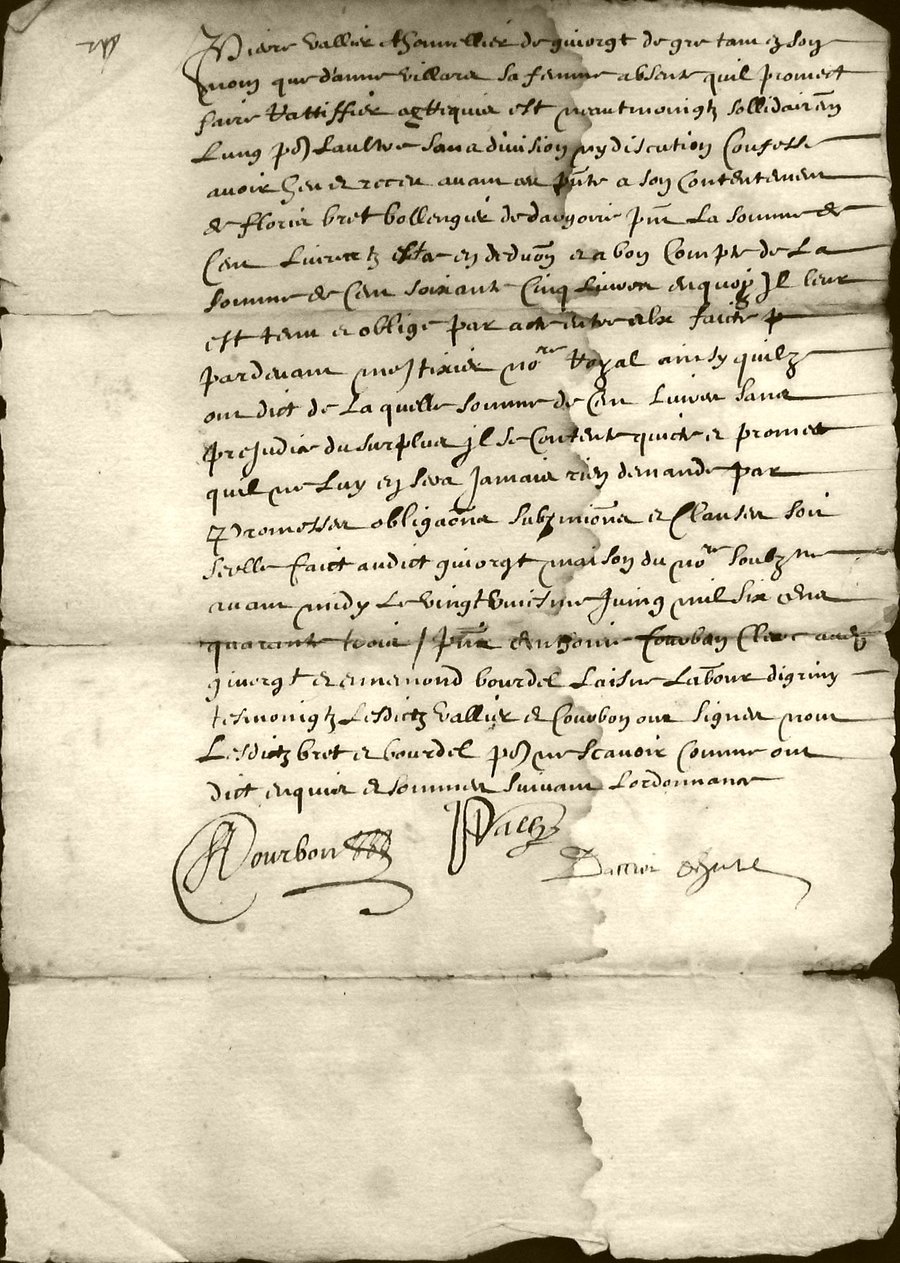 Pierre Vallier thonnellier de givorgt de gre tant en son
nom que danne villars sa femme absente quil promect
faire rattiffier et neantmoingtz sollidairem
Lung po Laultre sans division ny discution Confesse
avoir heu et receu avant ces pnte a son Contentement
de floris bret bollengier de dargoire pnt La somme de
Cent Livres tz en deduon et a bon Compte de La
somme de Cent soixante Cinq Livres enquoy Jl leur
est tenu et oblige par acte entre eulx faicte p
pardevant me Jtixier nore Royal ainsy quilz
ont dict de Laquelle somme de Cent Livres sans
preJudice du surplus Jl se Contente quicte et promect
quil ne Luy en sera Jamais rien demande par
promesses obligaons submions et Clauses soit
seelle faict audict givorgt maison du nore soubzne
avant midy Le vingt huictme Juing mil six cens
quarante trois / pnt Courbon Clerc audt
givorgt et ennemond bourdel Laisne Labour digriny
tesmoingtz Lesdictz vallier et Courbon ont signes nont
Lesdictz bret et bourdel po ne scavoir Comme ont
dict enquis et sommes suivant Lordonnance
Courbon